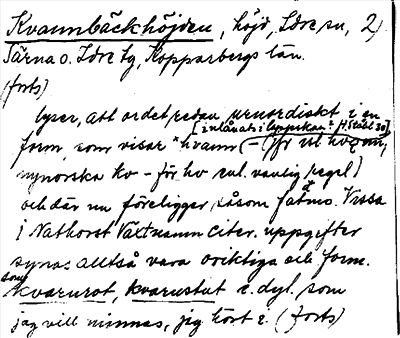 Kvannbäckhöjden, höjd, Idre sn, 2)
Särna o. Idre tg, Kopparbergs län.
(forts)
lyser, att ordet redan urnordiskt i en
[inlånats i lapskan? H. Ståhl 30]
form, som visar *hvann (- jfr isl. hvǫnn,
nynorska kv- för hv enl. vanlig regel)
och där nu föreligger, såsom fatmo. Vissa
i Nathorst Växtnamn citer. uppgifter
synas alltså vara oriktiga och form.
som kvarnrot, kvarnstut o. dyl. som
jag vill minnas, jag hört i (forts)